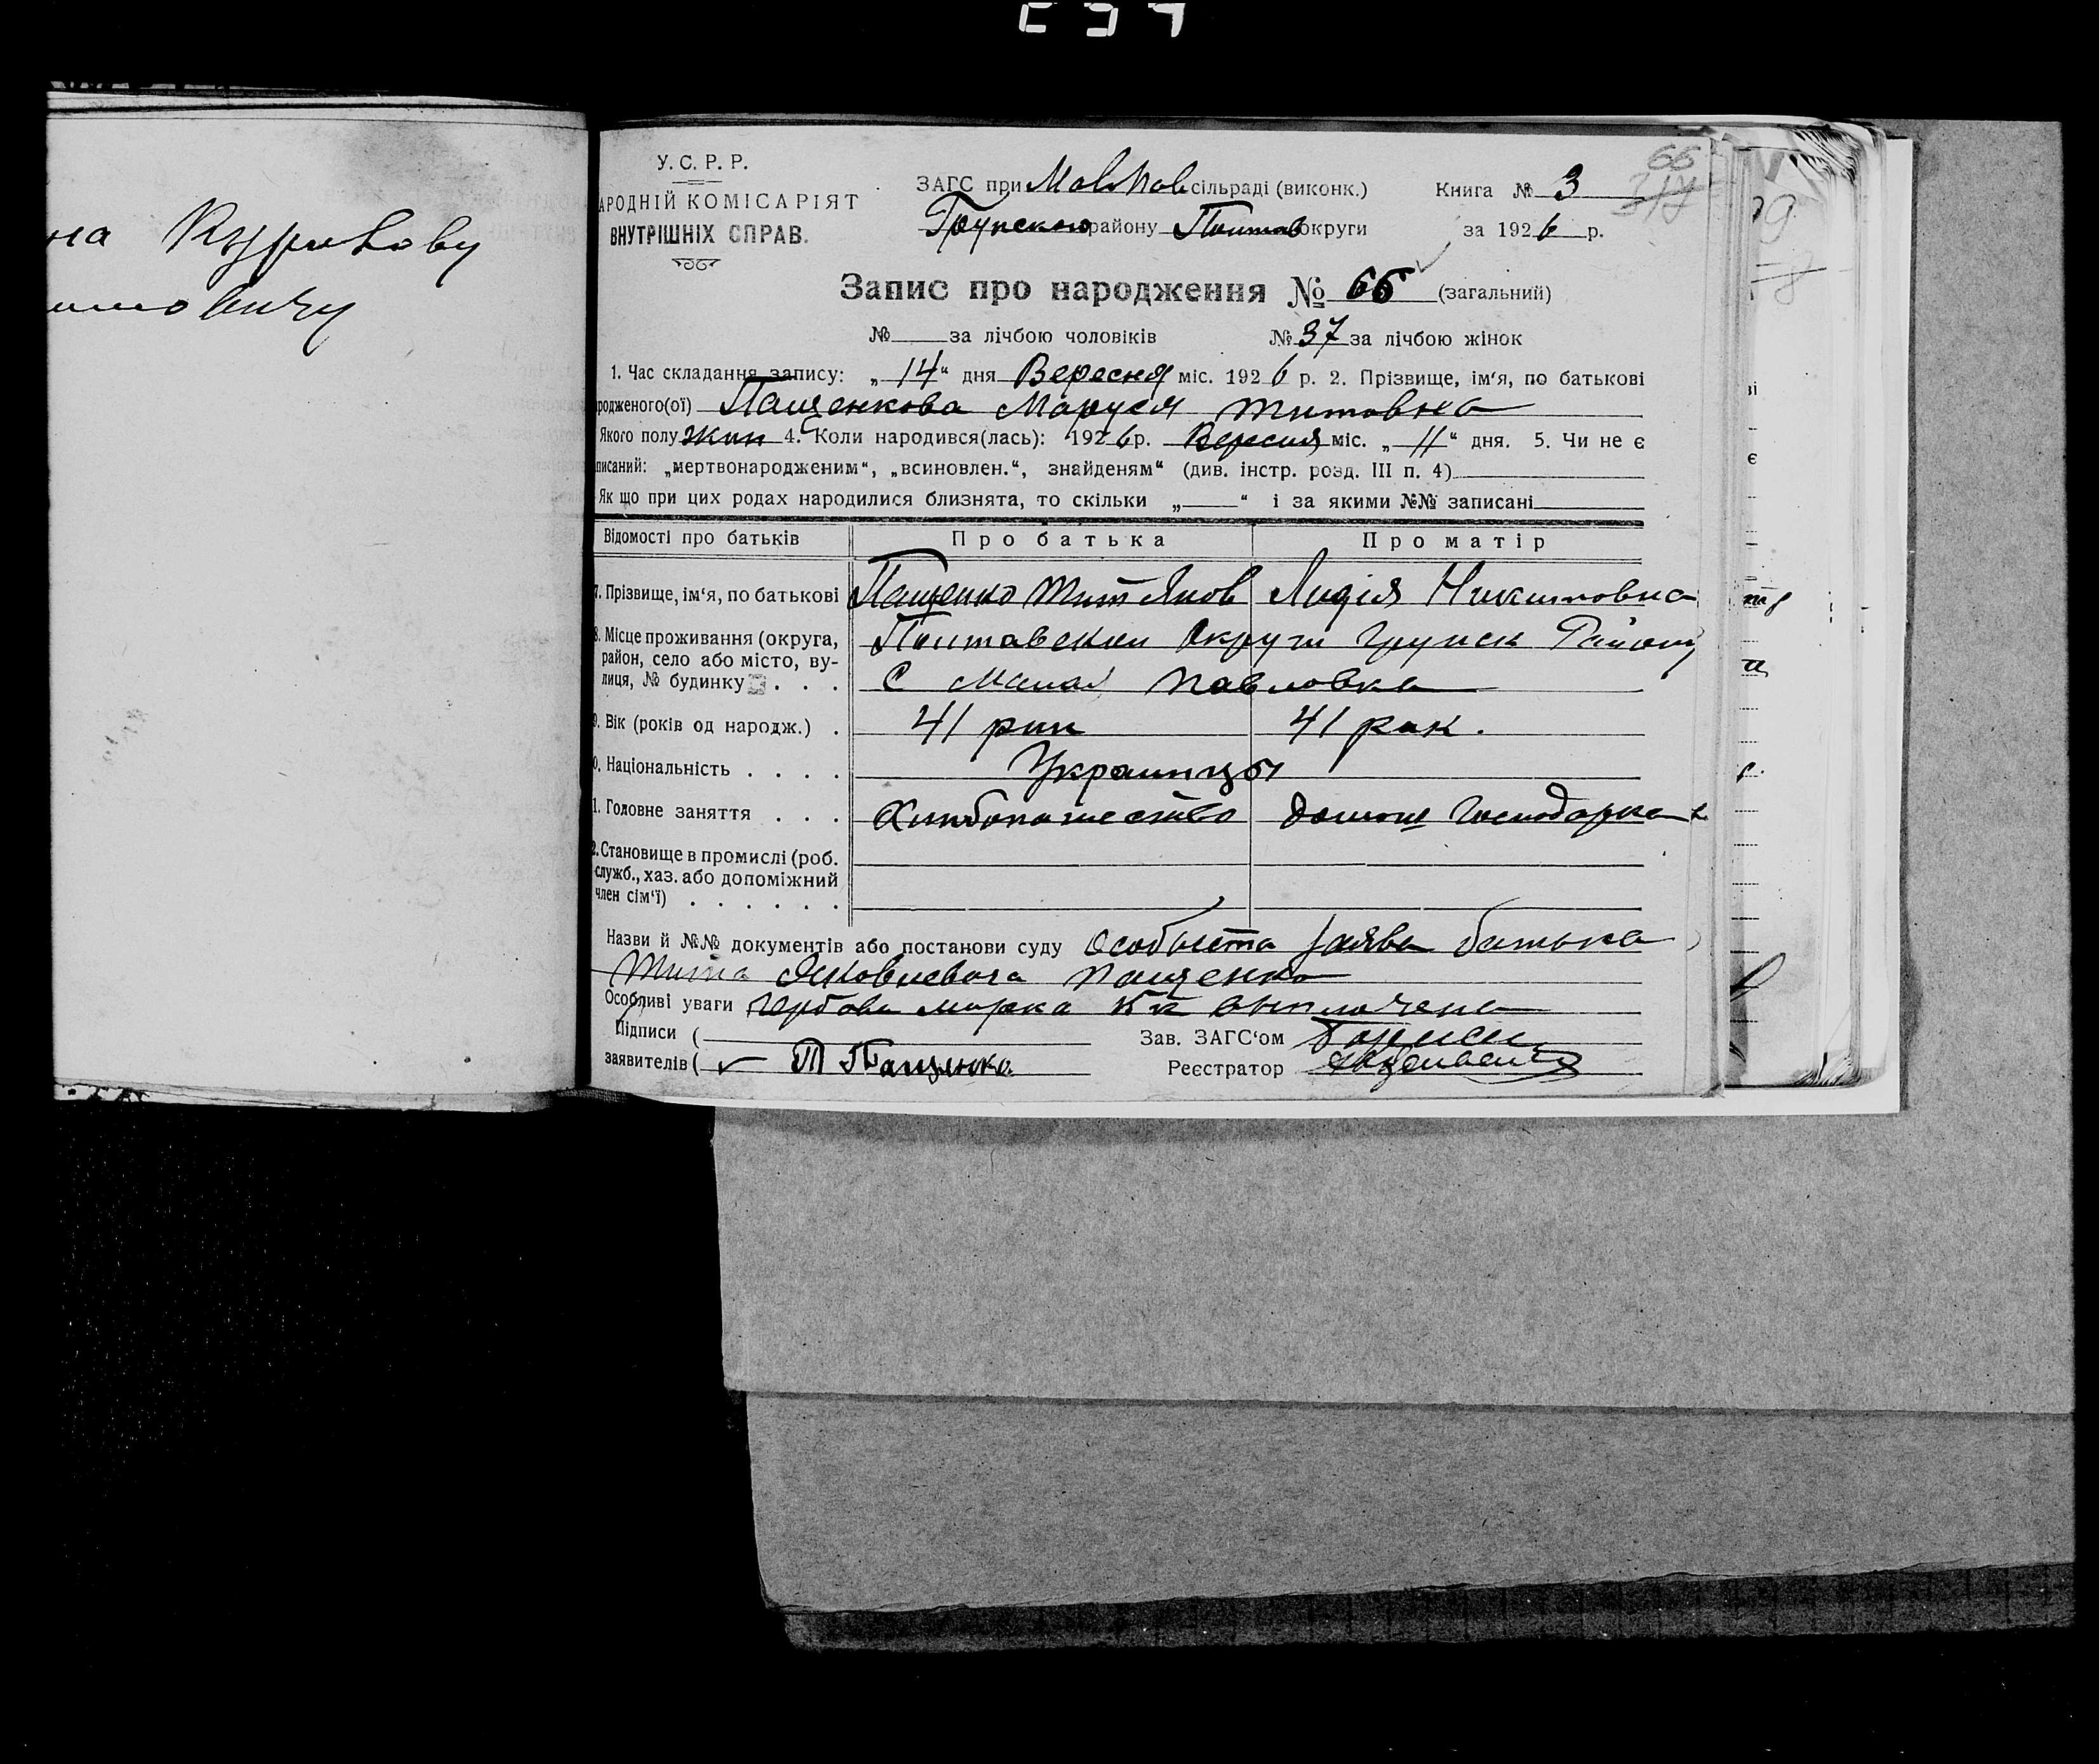 на Курикову
У. С. Р. Р.
АРОДНІЙ КОМІСАРІЯТ
ВНУТРІШНІХ СПРАВ.
ЗАГС при МалПав сільраді (виконк.)
Грунского району Полтав округи
Книга № 3
за 1926 р.
66
Запис про народження № 66 (загальний)
№ за лічбою чоловіків № 37 за лічбою жінок
1. Час складання запису: „14“ дня Вересня міс. 1926 р. 2. Прізвище, ім‘я, по батькові
родженого(ої) Пащенкова Маруся Титовна
Якого полу жин 4. Коли народився(лась): 1926 р. Вересня міс. „11“ дня. 5. Чи не є
писаний: „мертвонародженим“, „всиновлен.“, знайденям“ (див. інстр. розд. III п. 4)
Як що при цих родах народилися близнята, то скільки „ “ і за якими №№ записані
Відомості про батьків Про батька Про матір
7. Прізвище, ім‘я, по батькові Пащенко Тит Яков Лидія Никитовна
8. Місце проживання (округа, Полтавскои Округи Грунск Району
район, село або місто, ву-
лиця, № будинку . . . С Малая Павловка
9. Вік (років од народж.) . 41 рик 41 рак.
0. Національність . . . . Украинцы
1. Головне заняття . . . Хлибопашество Домаш Господарка
2. Становище в промислі (роб.
служб., хаз. або допоміжний
член сім‘ї) . . . . . .
Назви й №№ документів або постанови суду Особыста заява батька
Тита Яковлевича Пащенко
Особливі уваги Гербова марка 15 к выплачена
Підписи (
заявителів ( Т Пащенко
Зав. ЗАГС‘ом
Реєстратор